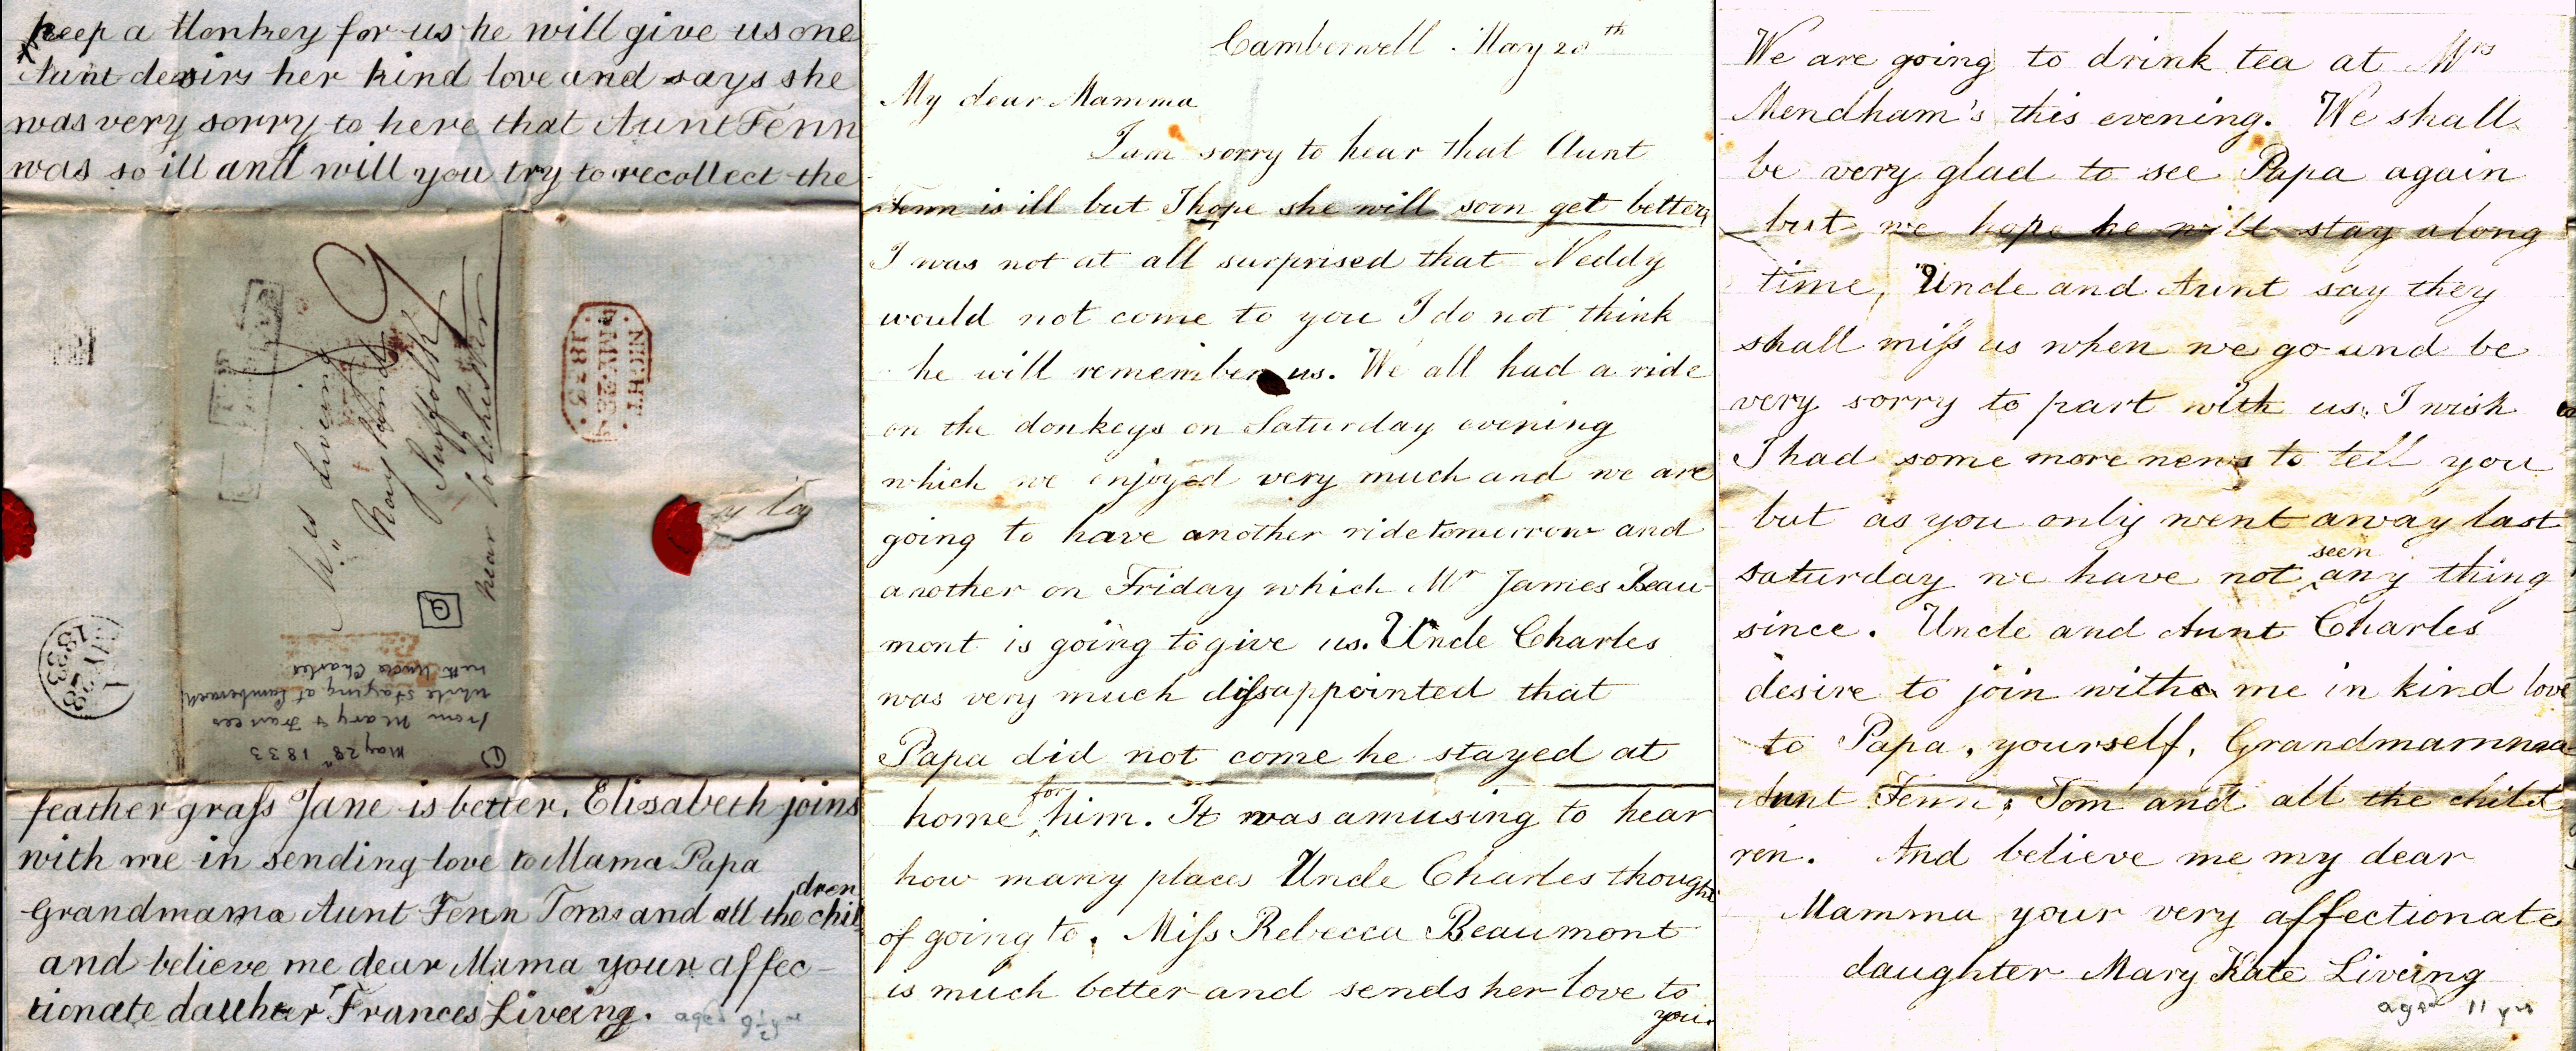 keep a Donkey for us he will give us one
Aunt desirs her kind love and says she
was very sorry to here that Aunt Fenn
was so ill and will you try to recollect the
Mrs Liveing
Nayland
Suffolk
near Colchester
NIGHT
MY. 28
1833
28
1833
May 28th 1833
from Mary & Frances
while staying at Camberwell
with Uncle Charles
feather grass Jane is better. Elisabeth joins
with me in sending love to Mama Papa
dren
Grandmama Aunt Fenn Tom and all the chil
and believe me dear Mama your affec-
tionate dauhter Frances Liveing.
aged 9½ yrs
Camberwell. May 28th
My dear Mamma
I am sorry to hear that Aunt
Fenn is ill but I hope she will soon get better,
I was not at all surprised that Neddy
would not come to you I do not think
he will remember us. We all had a ride
on the donkeys on Saturday evening
which we enjoyed very much and we are
going to have another ride tomorrow and
another on Friday which Mr James Beau-
mont is going to give us. Uncle Charles
was very much dissappointed that
Papa did not come he stayed at
for
home him. It was amusing to hear
how many places Uncle Charles thought
of going to. Miss Rebecca Beaumont
is much better and sends her love to
you.
We are going to drink tea at Mrs
Mendham's this evening. We shall
be very glad to see Papa again
but we hope he will stay along
time, Uncle and Aunt say they
shall miss us when we go and be
very sorry to part with us. I wish
I had some more news to tell you
but as you only went away last
seen
saturday we have not any thing
since. Uncle and Aunt Charles
desire to join with me in kind love
to Papa, yourself, Grandmamma
Aunt Fenn, Tom and all the child
ren. And believe me my dear
Mamma your very affectionate
daughter Mary Kate Liveing
aged 11 yrs